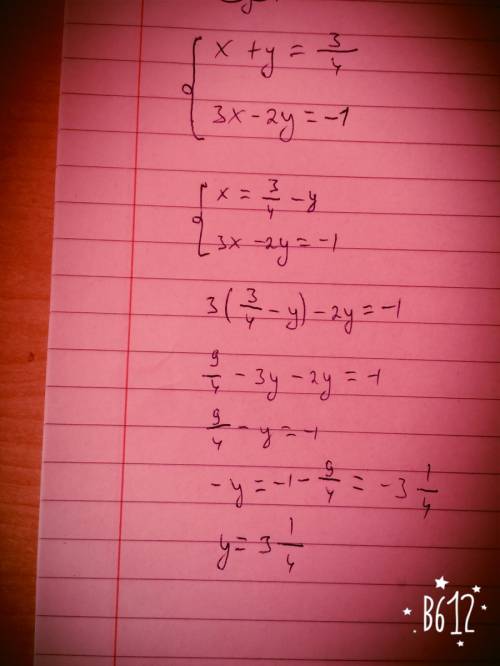 x + y = 3/4
3x - 2y = -1
x = 3/4 - y
3x - 2y = -1
3(3/4 - y) - 2y = -1
9/4 - 3y - 2y = -1
9/4 - y = -1
-y = -1 - 9/4 = -3 1/4
y = 3 1/4
B612